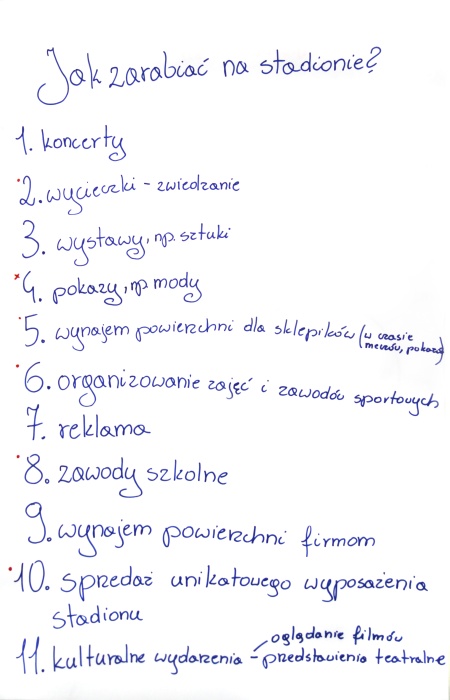 Jak zarabiać na stadionie?
1. koncerty
2. wycieczki - zwiedzanie
3. wystawy, np. sztuki
4. pokazy, np mody
5. wynajem powierzchni dla sklepików (w czasie meczów, pokazów)
6. organizowanie zajęć i zawodów sportowych
7. reklama
8. zawody szkolne
9. wynajem powierzchni firmom
10. sprzedaż unikatowego wyposażenia
stadionu
11. kulturalne wydarzenia - oglądanie filmów
przedstawienia teatralne